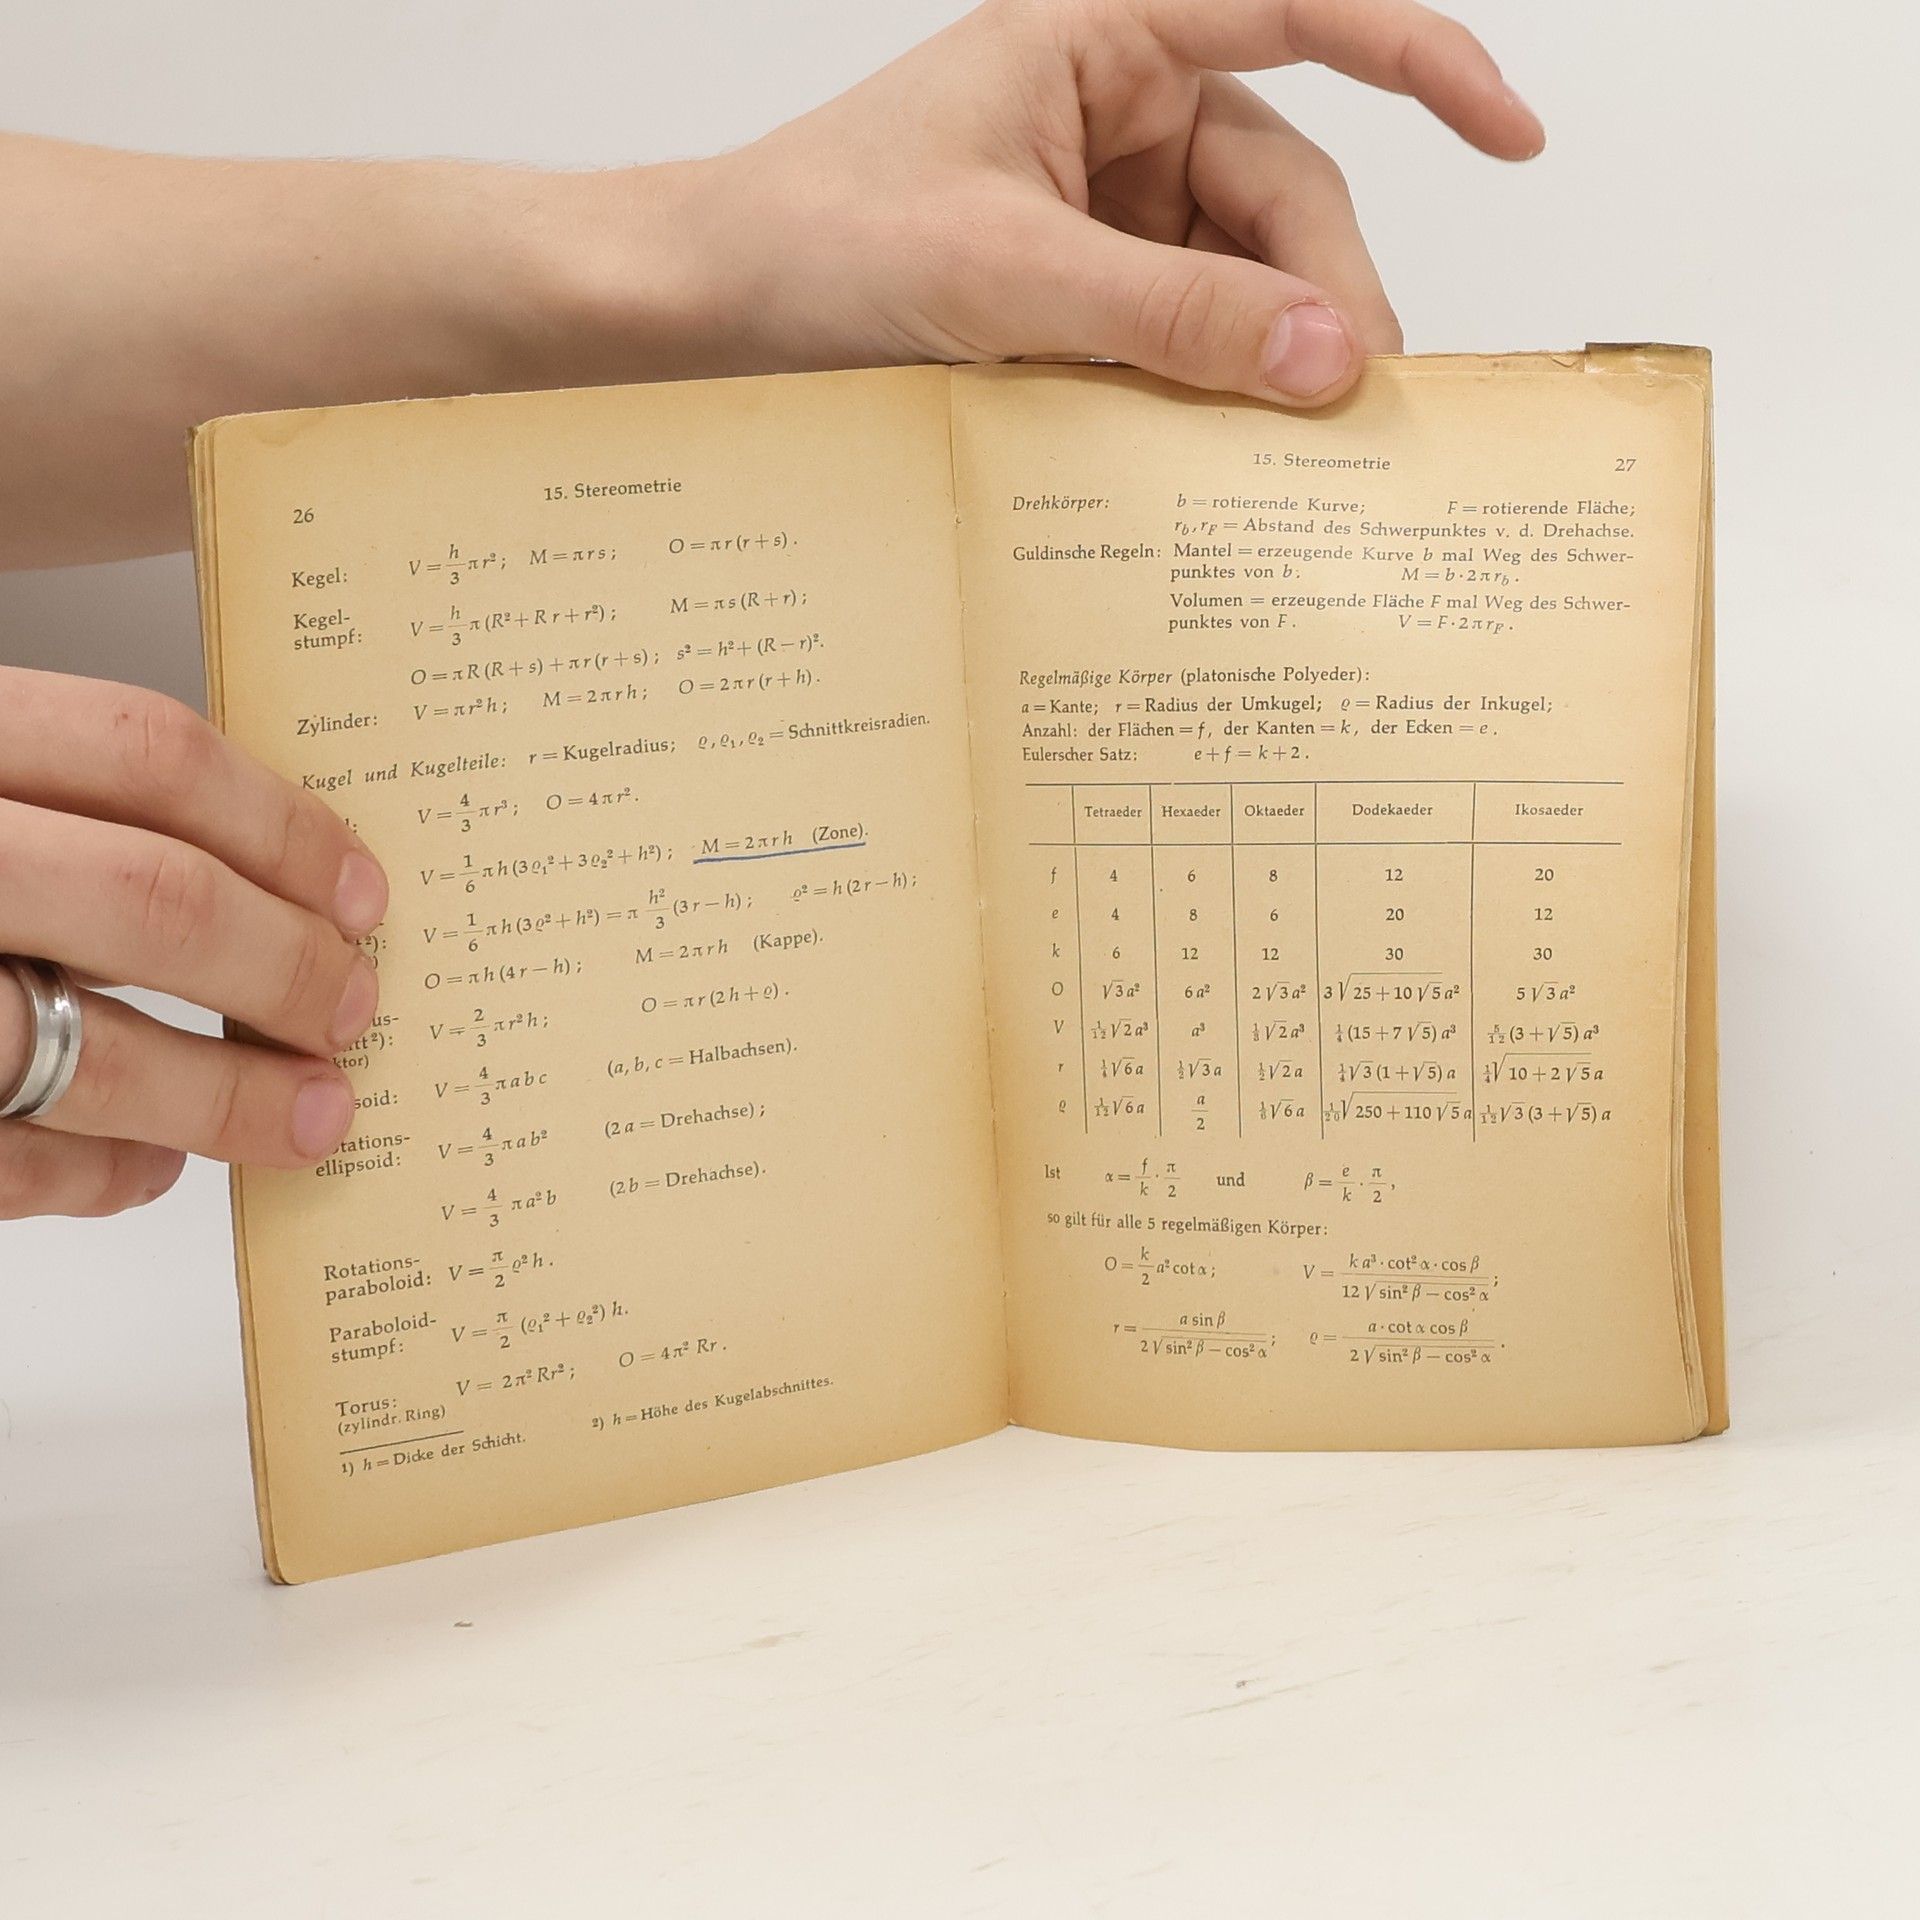 26
15. Stereometrie
Kegel: V = h/3 π r²; M = π r s; O = π r (r + s).
Kegel-
stumpf: V = h/3 π (R² + R r + r²); M = π s (R + r);
O = π R (R + s) + π r (r + s); s² = h² + (R − r)².
Zylinder: V = π r² h; M = 2 π r h; O = 2 π r (r + h).
Kugel und Kugelteile: r = Kugelradius; ϱ, ϱ₁, ϱ₂ = Schnittkreisradien.
V = 4/3 π r³; O = 4 π r².
V = 1/6 π h (3 ϱ₁² + 3 ϱ₂² + h²); M = 2 π r h (Zone).
V = 1/6 π h (3 ϱ² + h²) = π h²/3 (3 r − h); ϱ² = h (2 r − h);
O = π h (4 r − h); M = 2 π r h (Kappe).
V = 2/3 π r² h; O = π r (2 h + ϱ).
soid: V = 4/3 π a b c (a, b, c = Halbachsen).
tations-
ellipsoid: V = 4/3 π a b² (2 a = Drehachse);
V = 4/3 π a² b (2 b = Drehachse).
Rotations-
paraboloid: V = π/2 ϱ² h.
Paraboloid-
stumpf: V = π/2 (ϱ₁² + ϱ₂²) h.
Torus: V = 2 π² R r²; O = 4 π² R r.
(zylindr. Ring)
1) h = Dicke der Schicht. 2) h = Höhe des Kugelabschnittes.
15. Stereometrie
27
Drehkörper: b = rotierende Kurve; F = rotierende Fläche;
r_b, r_F = Abstand des Schwerpunktes v. d. Drehachse.
Guldinsche Regeln: Mantel = erzeugende Kurve b mal Weg des Schwer-
punktes von b. M = b · 2 π r_b.
Volumen = erzeugende Fläche F mal Weg des Schwer-
punktes von F. V = F · 2 π r_F.
Regelmäßige Körper (platonische Polyeder):
a = Kante; r = Radius der Umkugel; ϱ = Radius der Inkugel;
Anzahl: der Flächen = f, der Kanten = k, der Ecken = e.
Eulerscher Satz: e + f = k + 2.
Tetraeder Hexaeder Oktaeder Dodekaeder Ikosaeder
f 4 6 8 12 20
e 4 8 6 20 12
k 6 12 12 30 30
O √3 a² 6 a² 2 √3 a² 3 √(25 + 10 √5) a² 5 √3 a²
V 1/12 √2 a³ a³ 1/3 √2 a³ 1/4 (15 + 7 √5) a³ 5/12 (3 + √5) a³
r 1/4 √6 a 1/2 √3 a 1/2 √2 a 1/4 √3 (1 + √5) a 1/4 √(10 + 2 √5) a
ϱ 1/12 √6 a a/2 1/6 √6 a 1/20 √(250 + 110 √5) a 1/12 √3 (3 + √5) a
Ist α = f/k · π/2 und β = e/k · π/2,
so gilt für alle 5 regelmäßigen Körper:
O = k/2 a² cot α; V = k a³ · cot² α · cos β / 12 √(sin² β − cos² α);
r = a sin β / 2 √(sin² β − cos² α); ϱ = a · cot α cos β / 2 √(sin² β − cos² α).